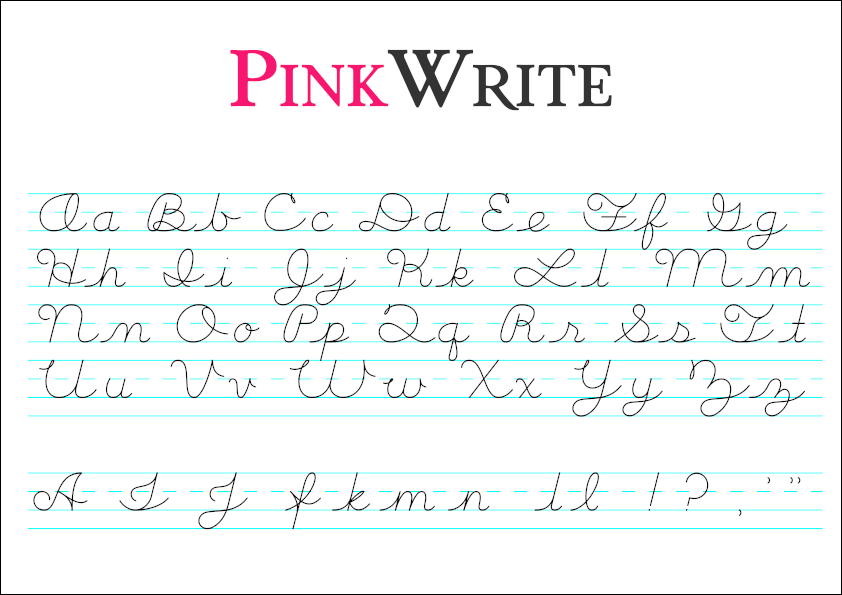 PINKWRITE
Aa Bb Cc Dd Ee Ff Gg
Hh Ii Jj Kk Ll Mm
Nn Oo Pp Qq Rr Ss Tt
Uu Vv Ww Xx Yy Zz
A I J f k m n i l ! ? , ' "